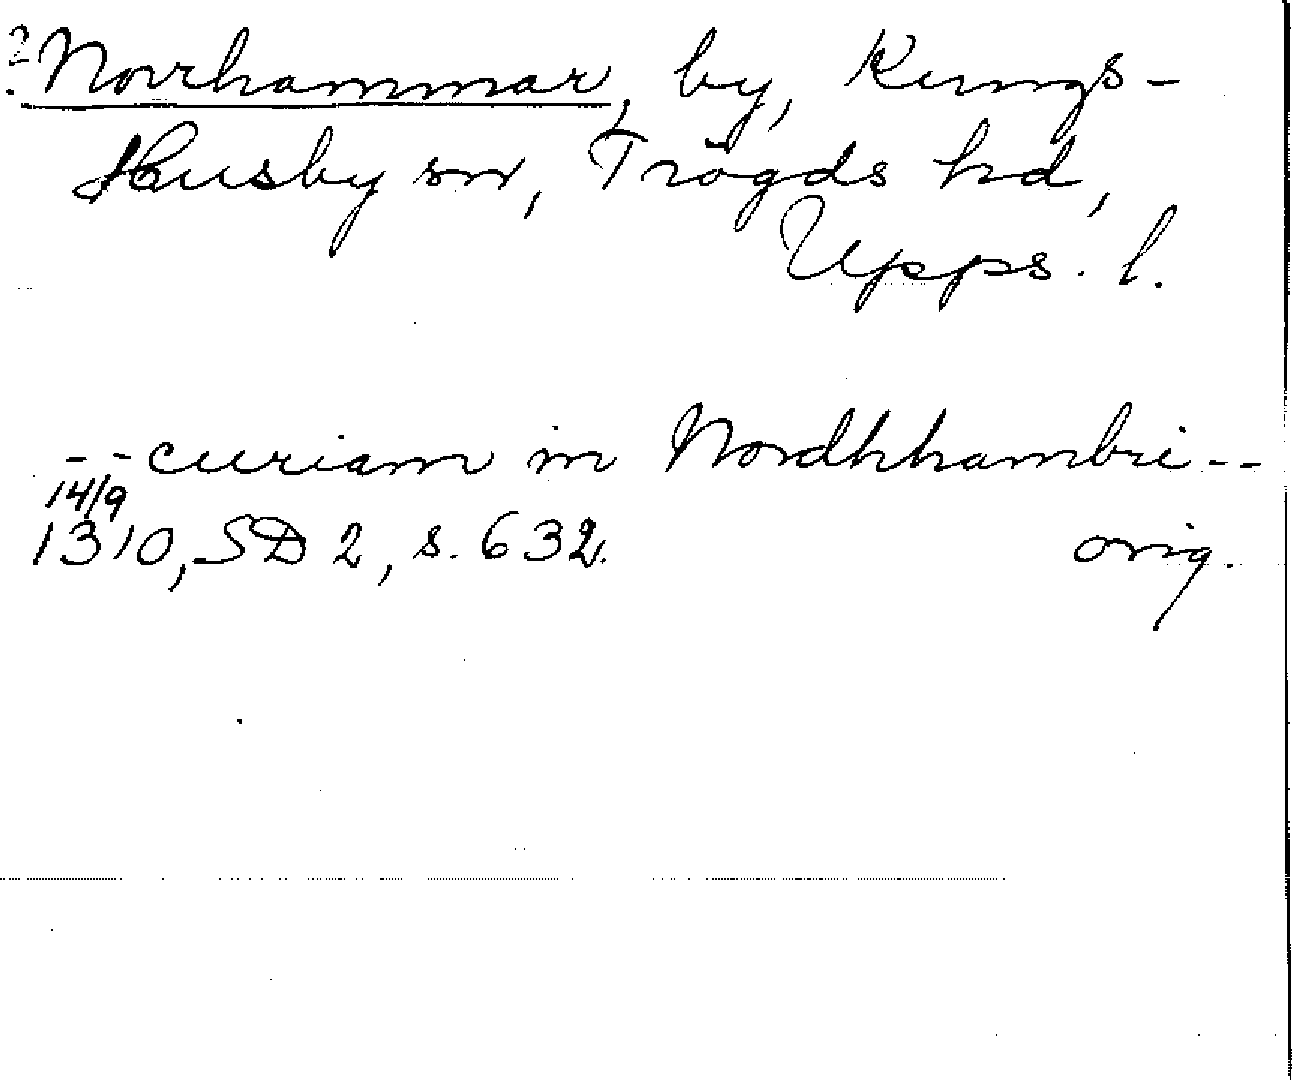 ? Norrhammar, by, Kungs-
Husby sn, Trögds hd,
Upps. l.
--curiam in Nordhhambri--
14/9
1310, SD 2, s. 632. orig.